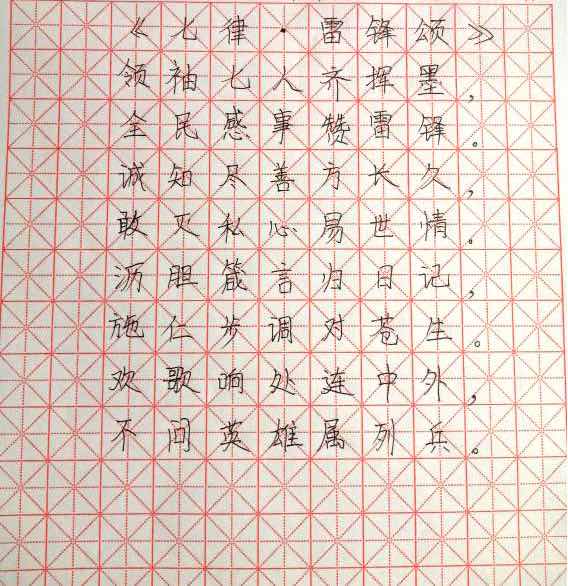 《七律·雷锋颂》
领袖七人齐挥墨，
全民感事赞雷锋。
诚知尽善方长久，
敢灭私心易世情。
沥胆箴言归日记，
施仁步调对苍生。
欢歌响处连中外，
不问英雄属列兵。